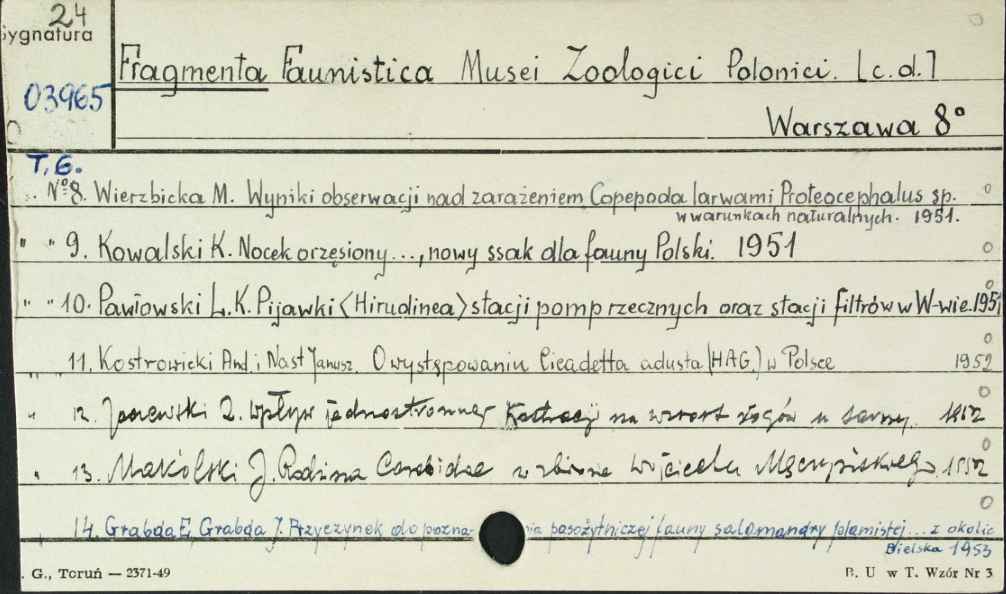 24
Sygnatura
03965
Fragmenta Faunistica Musei Zoologici Polonici. [c.d.]
Warszawa 8°
T. 6.
№ 8. Wierzbicka M. Wyniki obserwacji nad zarażeniem Copepoda larwami Proteocephalus sp.
w warunkach naturalnych. 1951.
" " 9. Kowalski K. Nocek orzęsiony..., nowy ssak dla fauny Polski. 1951
" " 10. Pawłowski L.K. Pijawki <Hirudinea> stacji pomp rzecznych oraz stacji filtrów w W-wie. 1951
" " 11. Kostrowicki And. i Nast Janusz. O występowaniu Cicadetta adusta (HAG.) w Polsce 1952
" 12. Z. Wpływ jednostronnej kastracji na wzrost rogów u sarny. 1952
" 13. Makólski J. Rodzina Carabidae w zbiorze Wojciecha Mączyńskiego 1952
14. Grabda E, Grabda J. Przyczynek do pozna- nia pasożytniczej fauny salamandry plamistej... z okolic
Bielska 1953
. G., Toruń — 2371-49
B. U w T. Wzór Nr 3